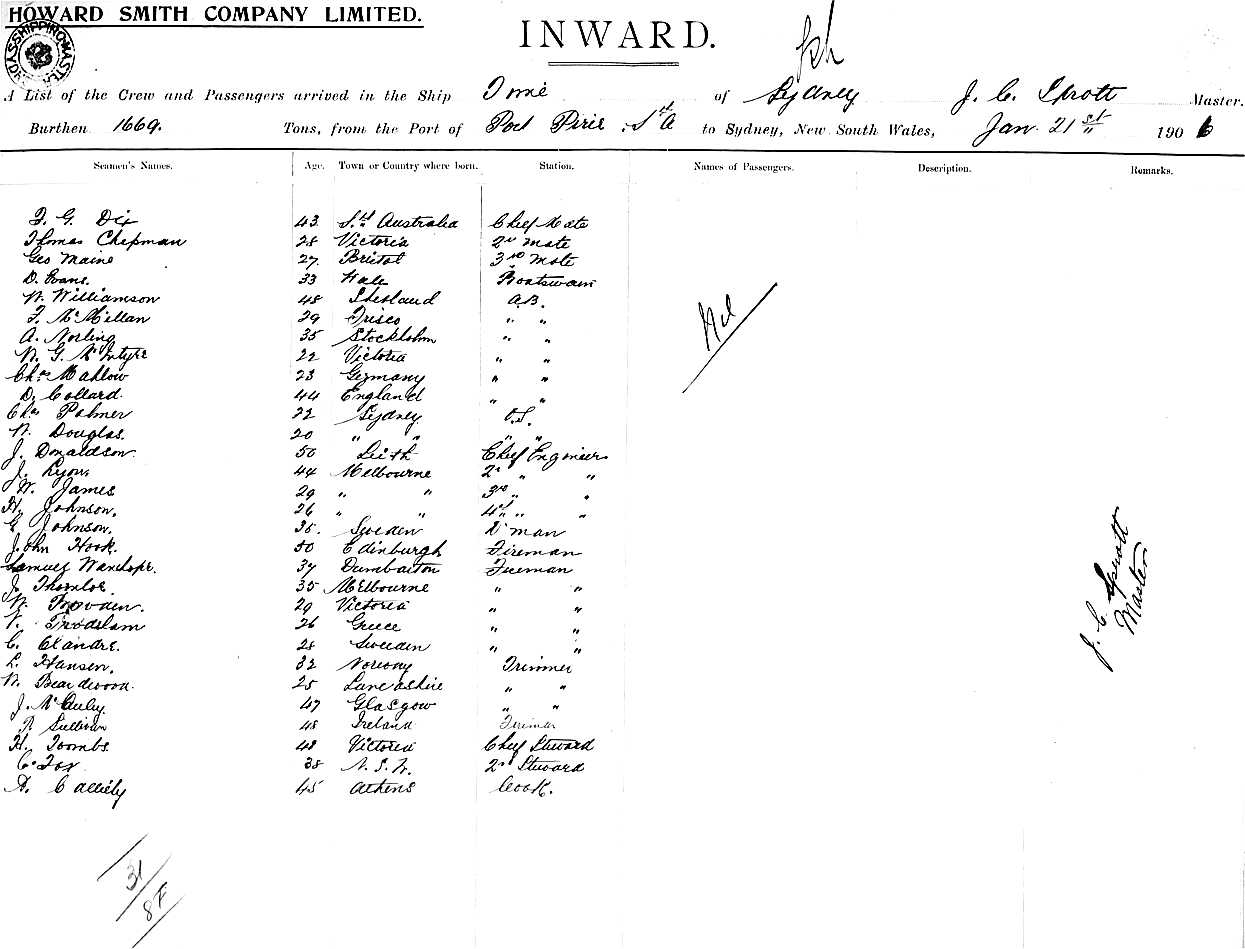 HOWARD SMITH COMPANY LIMITED.
INWARD.
A List of the Crew and Passengers arrived in the Ship Time of Sydney J. C. Sprott Master.
Burthen 1669. Tons, from the Port of Port Pirie Sth A to Sydney, New South Wales, Jan. 21st 1906
Seamen's Names. Age. Town or Country where born. Station. Names of Passengers. Description. Remarks.
F. G. Dix 43 Sth Australia Chief Mate
Thomas Chapman 28 Victoria 2nd Mate
Geo Maine 27 Bristol 3rd Mate
D. Evans. 33 Wale Boatswain
W. Williamson 48 Shetland A.B.
F. McMillan 29 Frisco " "
A. Norling 35 Stockholm " "
W. G. McIntyre 22 Victoria " "
Chas Mahlow 23 Germany " "
D. Collard. 44 England " "
Chs Palmer 22 Sydney O.S.
W. Douglas. 20 " " " "
J. Donaldson. 50 Leith Chief Engineer
J. Lyons 44 Melbourne 2nd " "
W. James 29 " " 3rd " "
H. Johnson. 26 " " 4th " "
G. Johnson. 35. Sweden D'man
John Hook. 50 Edinburgh Fireman
Samuel Wanchope. 37 Dumbarton Fireman
J. Thornloe 35 Melbourne " "
W. 29 Victoria " "
26 Greece " "
C. 28 Sweden " "
L. Hansen. 32 Norway Trimmer
W. Beardwood. 25 Lancashire " "
J. McAuley. 47 Glasgow " "
P. Sullivan 48 Ireland Trimmer
H. Toombs. 48 Victoria Chief Steward
C. Fox 38 N.S.W. 2nd Steward
A. 45 Athens Cook.
Nil
J. C. Sprott
Master
31
8F